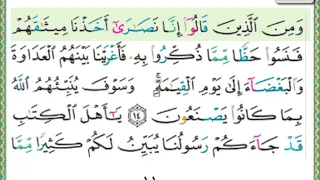 وَمِنَ ٱلَّذِينَ قَالُوٓا۟ إِنَّا نَصَـٰرَىٰٓ أَخَذْنَا مِيثَـٰقَهُمْ
فَنَسُوا۟ حَظًّا مِّمَّا ذُكِّرُوا۟ بِهِۦ فَأَغْرَيْنَا بَيْنَهُمُ ٱلْعَدَاوَةَ
وَٱلْبَغْضَآءَ إِلَىٰ يَوْمِ ٱلْقِيَـٰمَةِ ۚ وَسَوْفَ يُنَبِّئُهُمُ ٱللَّهُ
بِمَا كَانُوا۟ يَصْنَعُونَ ١٤ يَـٰٓأَهْلَ ٱلْكِتَـٰبِ
قَدْ جَآءَكُمْ رَسُولُنَا يُبَيِّنُ لَكُمْ كَثِيرًا مِّمَّا